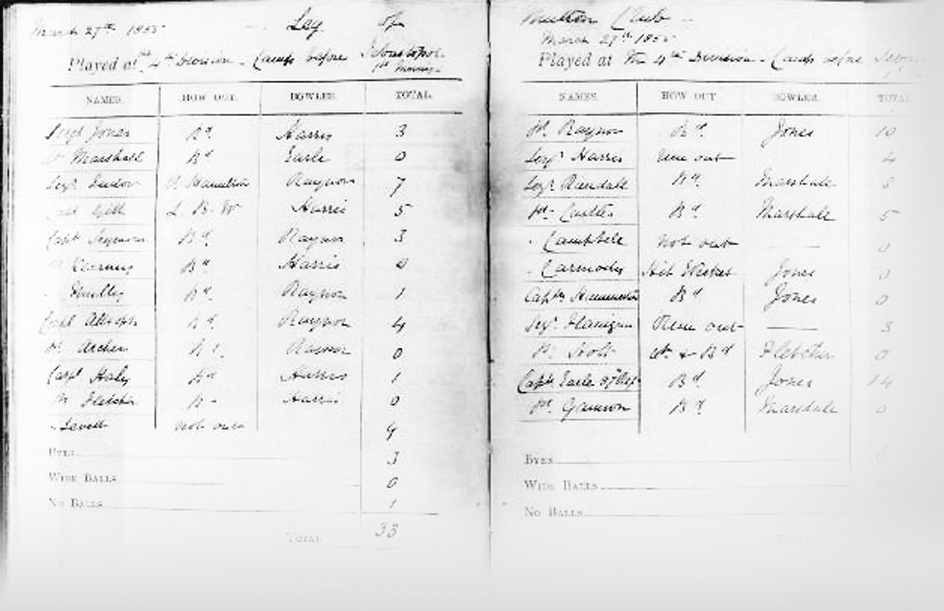 March 27th 1855 Leg of
Played at 4th Division - Camp before Sebastopol
1st Inning
NAMES. HOW OUT. BOWLER. TOTAL.
Sergt Jones Bd. Harris 3
Marshall Bd. Earle 0
Sergt Raynor 7
L. B. W Harris 5
Capt Seymour Bd. Raynor 3
Bd. Harris 0
Bd. Raynor 1
Bd. Raynor 4
Mr Archer Raynor 0
Haly Bd Harris 1
Mr Fletcher B Harris 0
Levett not out 9
BYES 3
WIDE BALLS 0
NO BALLS 1
TOTAL 33
Mutton Club
March 27th 1855
Played at The 4th Division - Camp before
NAMES. HOW OUT BOWLER. TOTAL
Mr Raynor Bd. Jones 10
Sergt. Harris Run out 4
Sergt Randale Bd. Marshale 3
Bd. Marshale 5
Campbele not out — 0
Carmody Hit Wicket Jones 0
Capt. Bd. Jones 0
Sergt. Flanigan Run out — 3
Mr Holt ct. & Bd Fletcher 0
Capt. Earle Bd. Jones 14
Mr. Bd. Marshale 0
BYES
WIDE BALLS
NO BALLS
TOTAL